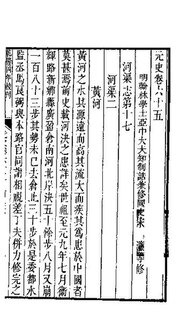 元史卷六十五
明翰林學士亞中大夫知制誥兼修國史宋濂等修
河渠志第十七
河渠二
黃河
黃河之水其源遠而高其流大而疾其為患於中國者
莫甚焉前史載河決之患詳矣世祖至元九年七月衞
輝路新鄉縣廣盈倉南河北岸決五十餘步八月又崩
一百八十三步其勢未已去倉止三十步於是委都水
監丞馬良弼與本路官同詣相視差丁夫併力修完之